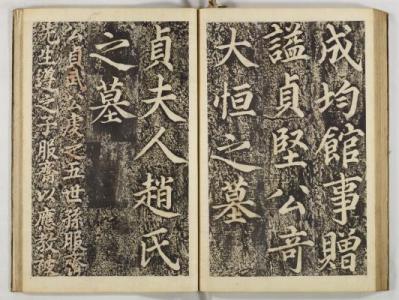 成均館事贈
諡貞堅公竒
大恒之墓
貞夫人趙氏
之墓
公貞武公虔之五世孫服齋
先生遵之子服齋以應教被